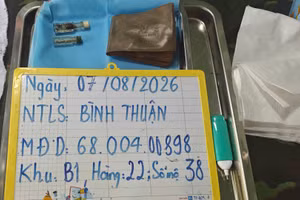 Ngày: 07/08/2026
NTLS: BÌNH THUẬN
MĐD: 68.004.00898
Khu: B1 Hàng: 22; Số mộ 38